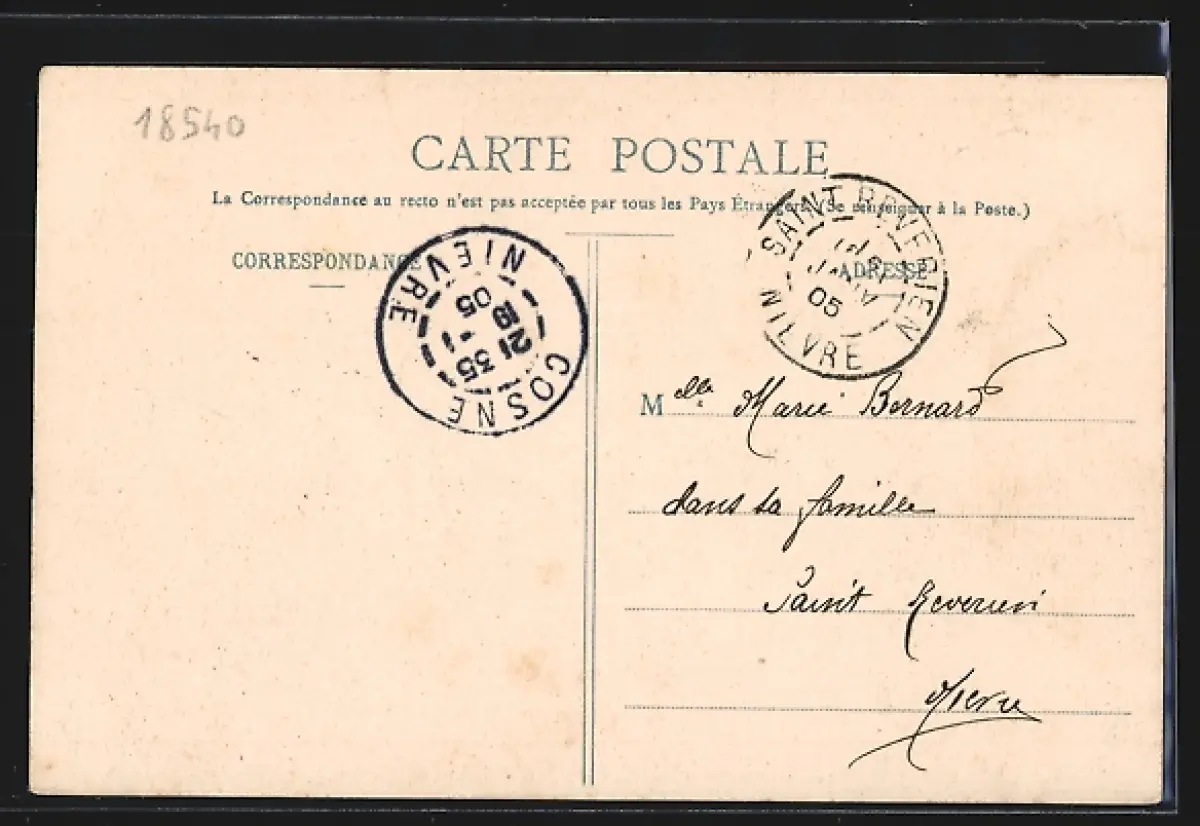 18540
CARTE POSTALE
La Correspondance au recto n'est pas acceptée par tous les Pays Étrangers. (Se renseigner à la Poste.)
CORRESPONDANCE
ADRESSE
COSNE
21 35
19 -1
05
NIÈVRE
SAINT-REVERIEN
05
NIÈVRE
Melle Marie Bernard
dans sa famille
Saint Reverien
Nievre